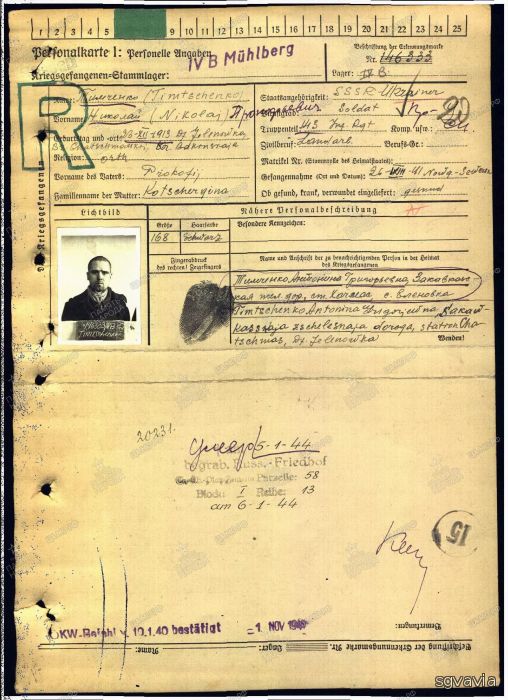 1 2 3 4 5 6 7 8 9 10 11 12 13 14 15 16 17 18 19 20 21 22 23 24 25
Personalkarte I: Personelle Angaben
IV B Mühlberg
Beschriftung der Erkennungsmarke
Kriegsgefangenen-Stammlager:
Nr. 146333
Lager: IV B.
R
Des Kriegsgefangenen
Name: Тимченко (Timtschenko)
Staatsangehörigkeit: SSSR-Ukrainer
Vorname: Николай (Nikolaj) Прокофьевич
Dienstgrad: Soldat
Truppenteil: 143 Inf. Rgt Komp. usw.:
Geburtstag und -ort: XII 1913 Dr. Jelenowka
Zivilberuf: Landarb. Berufs-Gr.:
Religion: orth
Matrikel Nr. (Stammrolle des Heimatstaates):
Vorname des Vaters: Prokofij
Gefangennahme (Ort und Datum): 26 VIII 41
Familienname der Mutter: Kotschergina
Ob gesund, krank, verwundet eingeliefert: gesund
Lichtbild
Nähere Personalbeschreibung
Größe Haarfarbe Besondere Kennzeichen:
168 schwarz
Fingerabdruck des rechten! Zeigefingers
Name und Anschrift der zu benachrichtigenden Person in der Heimat des Kriegsgefangenen
Тимченко Антонина Григорьевна, Закавказ-
ская жел. дор, ст. с. Еленовка
Timtschenko Antonina Grigorjewna, Sakaw-
kasskaja zschelesnaja doroga, station Cha-
tschmas, Dr. Jelenowka
Wenden!
20231.
умер 5-1-44
begrab. Russ.-Friedhof
Parzelle: 58
Block: I Reihe: 13
am 6-1-44
15
OKW-Befehl v. 10.1.40 bestätigt
1 NOV 194
Bemerkungen:
Beschriftung der Erkennungsmarke Nr.
Lager:
Name:
sgvavia